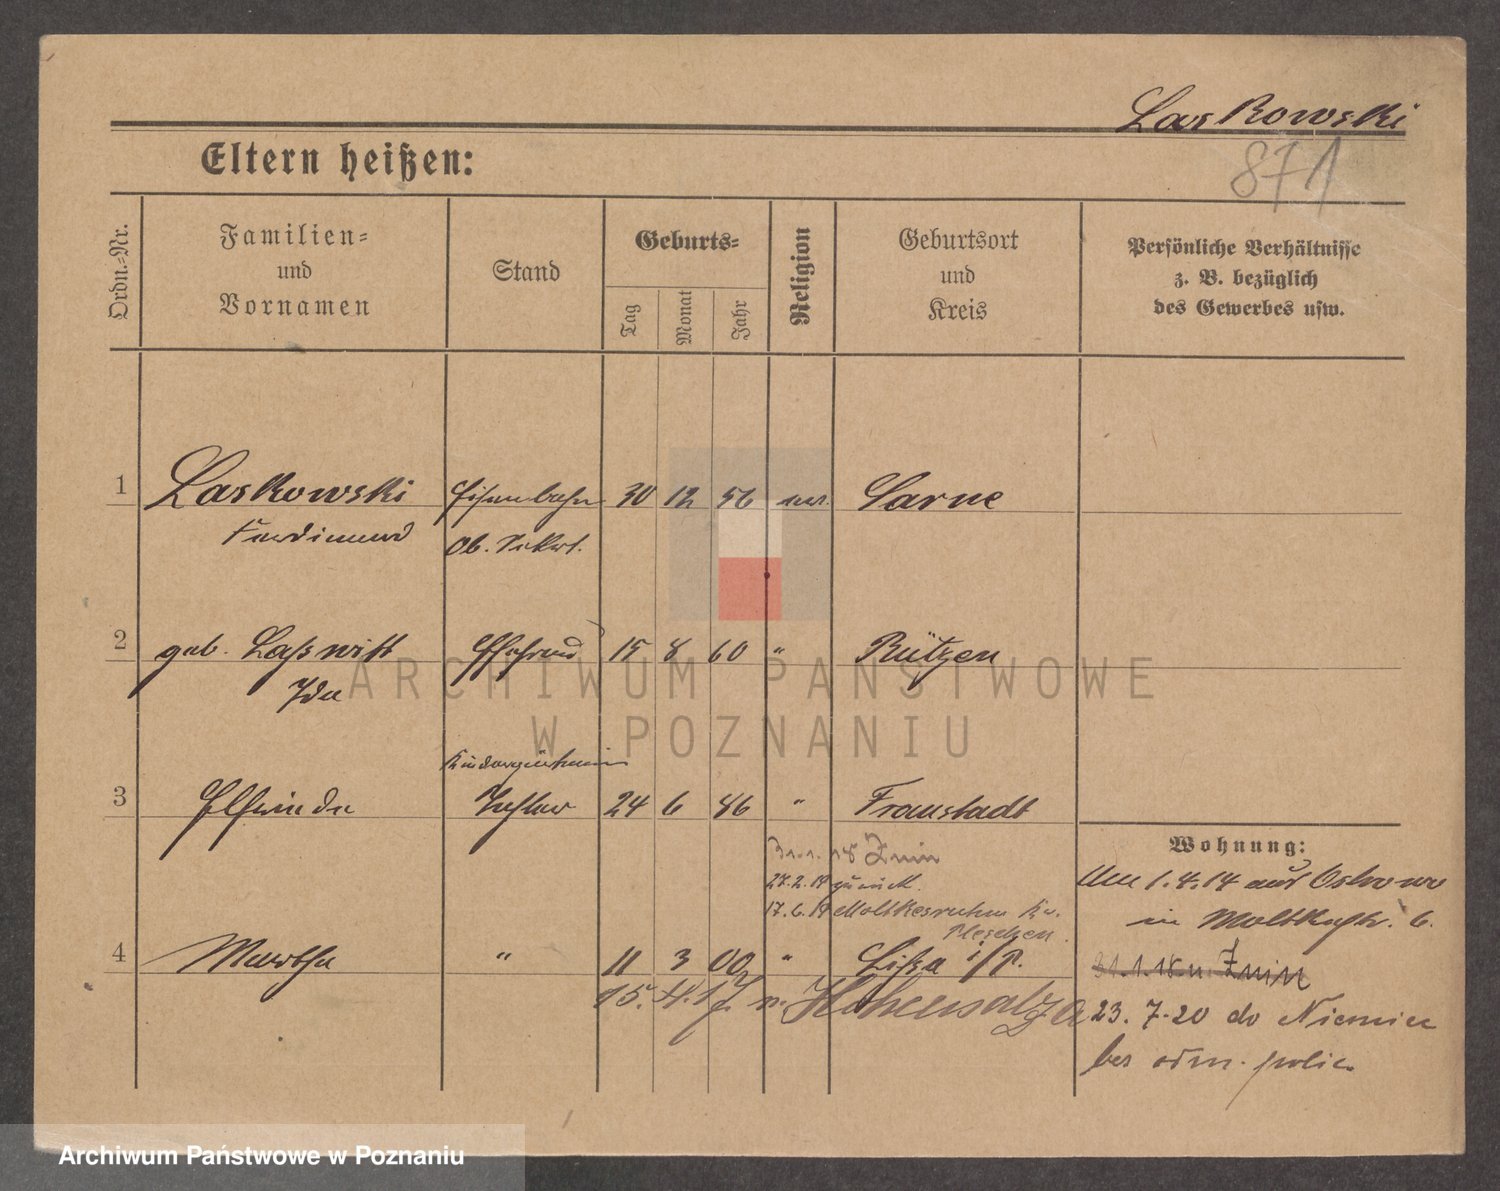 Laskowski
871
Eltern heißen:
Ordn.-Nr.
Familien-
und
Vornamen
Stand
Geburts-
Tag
Monat
Jahr
Religion
Geburtsort
und
Kreis
Persönliche Verhältnisse
z. B. bezüglich
des Gewerbes usw.
1 Laskowski Eisenbahn 30 12 56 ev. Sarne
Ferdinand Ob. Sekret.
2 geb. Laßwitt Ehefrau 15 8 60 " Rützen
Ida
Kindergärtnerin
3 Elfriede Tochter 24 6 86 " Fraustadt
31.1.18 Znin
27.2.19 zurück.
17.6.19 Moltkesruhm Kr.
Pleschen.
4 Martha " 11 3 00 " Lissa i/P.
15.4.17. n. Hohensalza
Wohnung:
Am 1.4.14 aus Ostrowo
in Moltkestr. 6.
31.1.18 n. Znin
23.7.20 do Niemiec
bez odm. polic.
ARCHIWUM PAŃSTWOWE
W POZNANIU
Archiwum Państwowe w Poznaniu